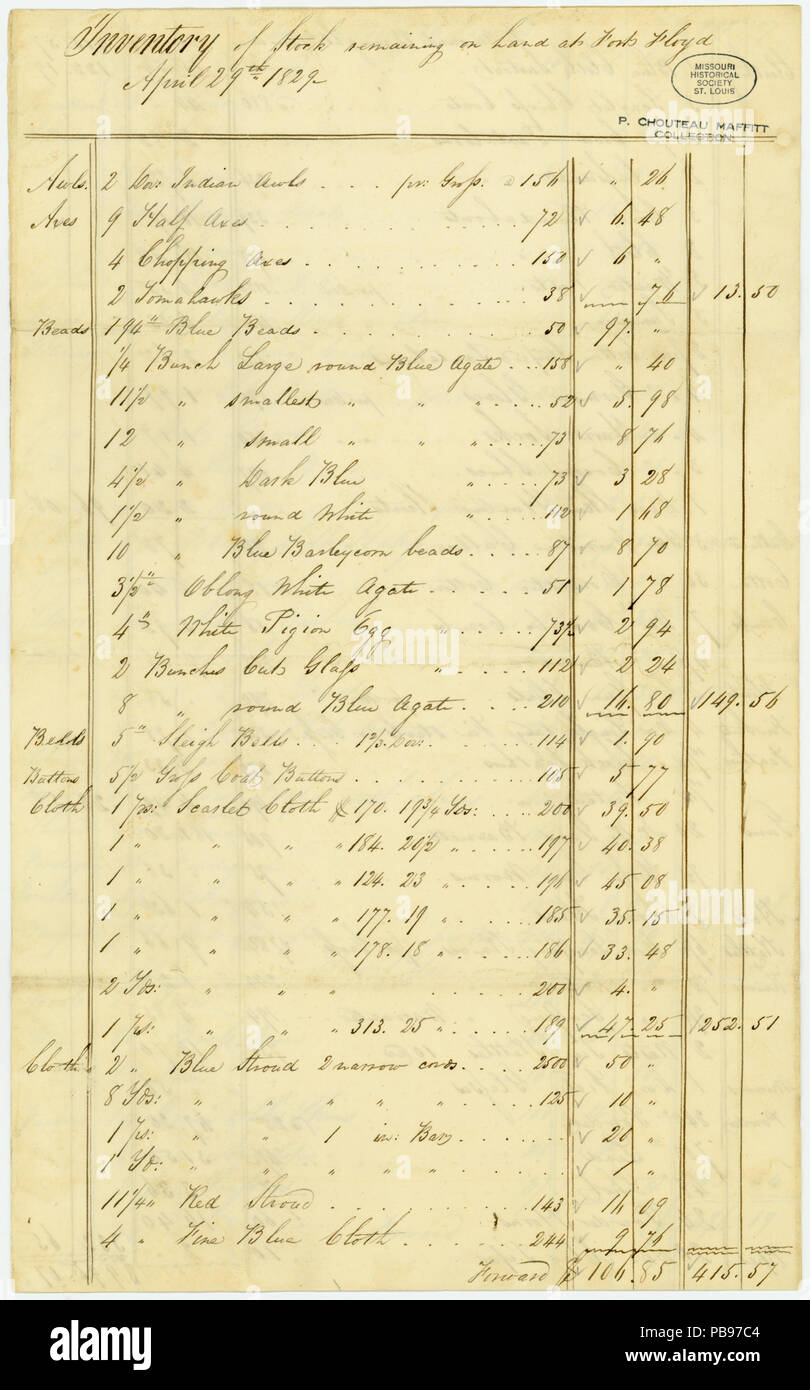 Inventory of Stock remaining on hand at Fort Floyd
April 29th 1829
MISSOURI
HISTORICAL
SOCIETY
ST. LOUIS
P. CHOUTEAU MAFFITT
COLLECTION
Awls. 2 Doz: Indian Awls . . . pr: Gross. @ 156 √ " 26
Axes 9 Half Axes . . . 72 √ 6. 48
4 Chopping Axes . . . 150 √ 6 "
2 Tomahawks . . . 38 √ 76 √ 13. 50
Beads 194 " Blue Beads . . . 50 √ 97. "
1/4 Bunch Large round Blue Agate . . . 158 √ " 40
11 1/2 " smallest " " " . . . 52 √ 5. 98
12 " small " " " . . . 73 √ 8 76
4 1/2 " Dark Blue " . . . 73 √ 3 28
1 1/2 " round White " . . . 112 √ 1 68
10 " Blue Barleycorn beads . . . 87 √ 8 70
3 1/2 " Oblong White Agate . . . 51 √ 1 78
4 " White Pigion Egg " . . . 73 1/2 √ 2 94
2 Bunches Cut Glass " . . . 112 √ 2 24
8 " round Blue Agate . . . 210 √ 16. 80 √ 149. 56
Bells 5 " Sleigh Bells . . . 1 2/3 Doz: . . . 114 √ 1. 90
Buttons 5 1/2 Gross Coat Buttons . . . 105 √ 5 77
Cloth 1 ps: Scarlet Cloth 170. 19 3/4 Yds: . . . 200 √ 39. 50
1 " " " " 184. 20 1/2 " . . . 197 √ 40. 38
1 " " " " 124. 23 " . . . 196 √ 45 08
1 " " " " 177. 19 " . . . 185 √ 35. 15
1 " " " " 178. 18 " . . . 186 √ 33. 48
2 Yds: " " " . . . 200 √ 4. "
1 ps: " " " 313. 25 " . . . 189 √ 47. 25 √ 252. 51
Cloth 2 " Blue Stroud 2 narrow cords . . . 2500 √ 50 "
8 Yds: " " " " " . . . 125 √ 10 "
1 ps: " " 1 in: Bar . . . √ 20 "
1 Yd: " " " " " . . . √ 1 "
11 1/4 " Red Stroud . . . 143 √ 16 09
4 " Fine Blue Cloth . . . 244 √ 9 76
Forward $ 106. 85 √ 415. 57
alamy
alamy
a
Image ID: PB97C4
www.alamy.com